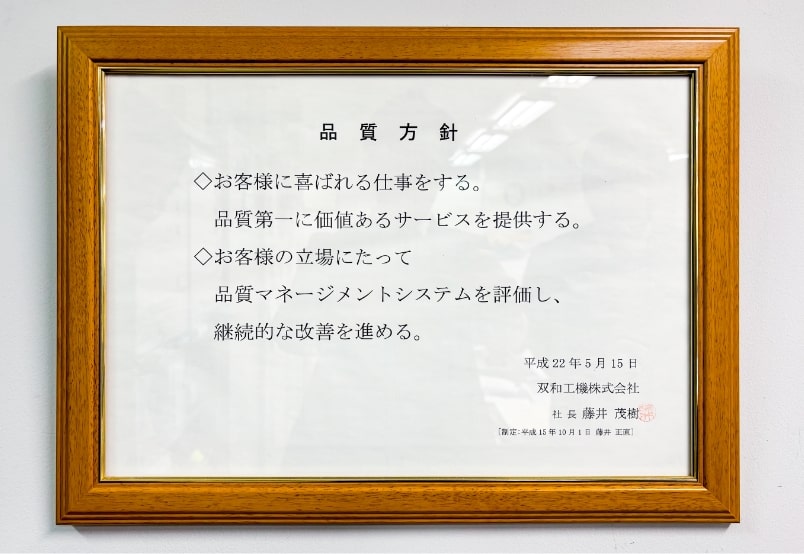 品質方針
◇お客様に喜ばれる仕事をする。
品質第一に価値あるサービスを提供する。
◇お客様の立場にたって
品質マネージメントシステムを評価し、
継続的な改善を進める。
平成22年5月15日
双和工機株式会社
社長 藤井 茂樹
[制定:平成15年10月1日 藤井 正直]